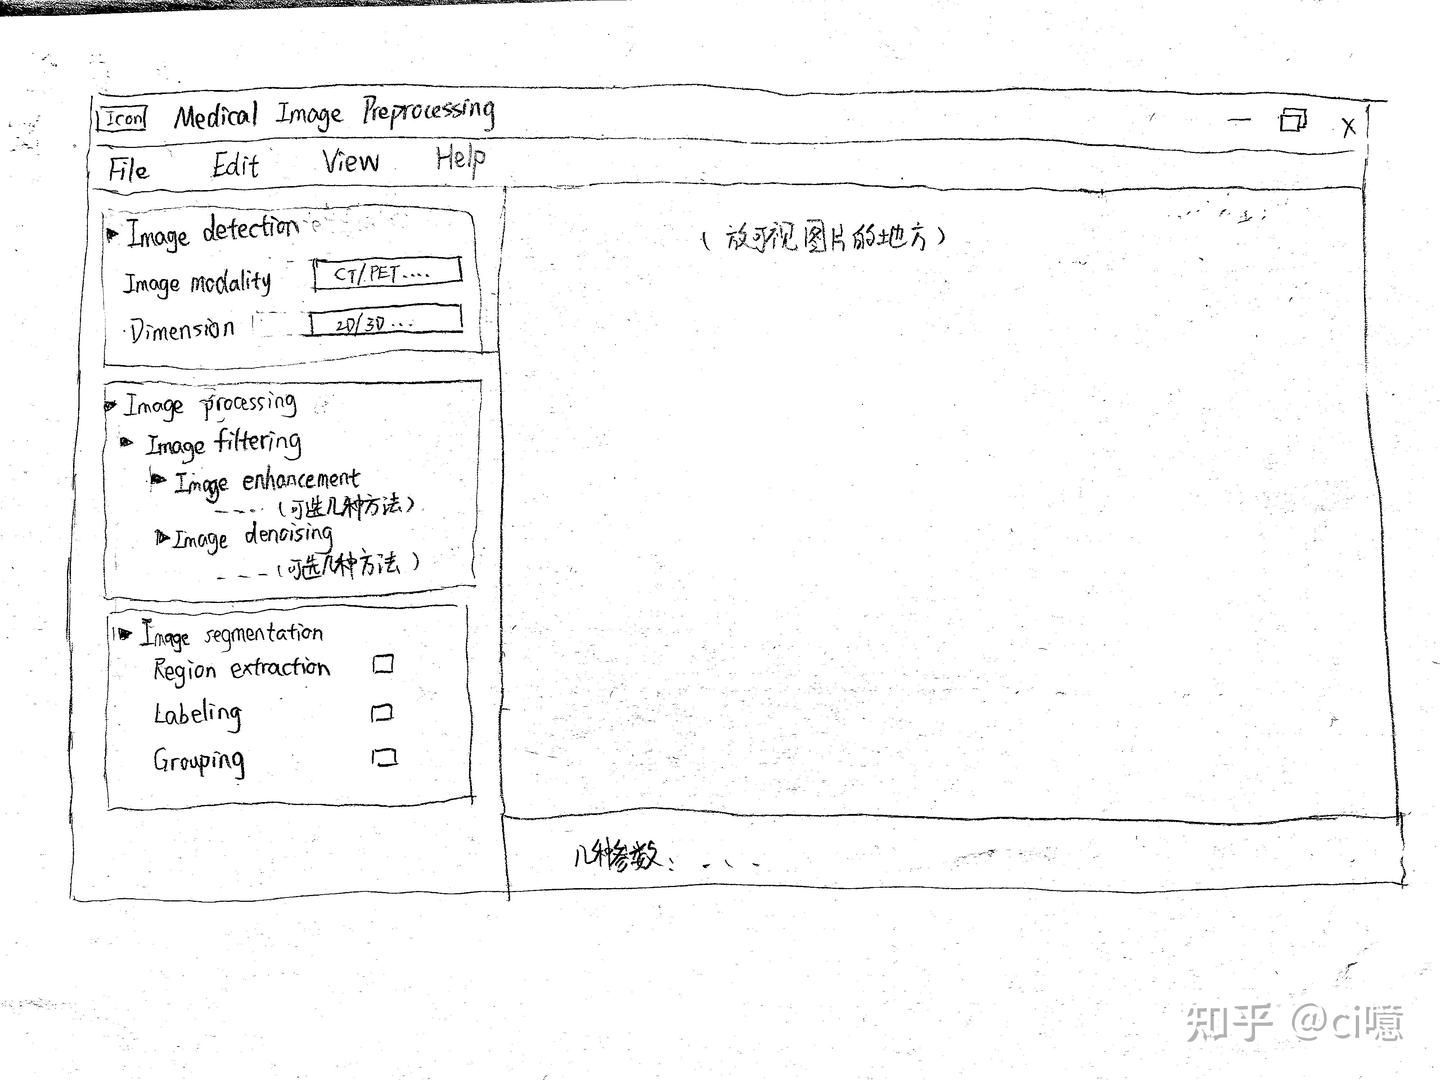 Icon Medical Image Preprocessing — X
File Edit View Help
Image detection
Image modality CT/PET....
Dimension 2D/3D...
(放可视图片的地方)
Image processing
Image filtering
Image enhancement
---- (可选几种方法)
Image denoising
---- (可选几种方法)
Image segmentation
Region extraction
Labeling
Grouping
几种参数: ...
知乎 @ci噫